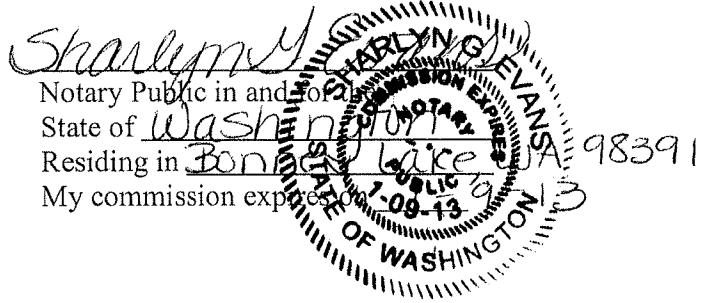 Sharlyn G Evans
Notary Public in and for the
State of Washington
Residing in Bonney Lake WA 98391
My commission expires on 1-9-13
SHARLYN G. EVANS
COMMISSION EXPIRES
NOTARY
PUBLIC
1-09-13
STATE OF WASHINGTON